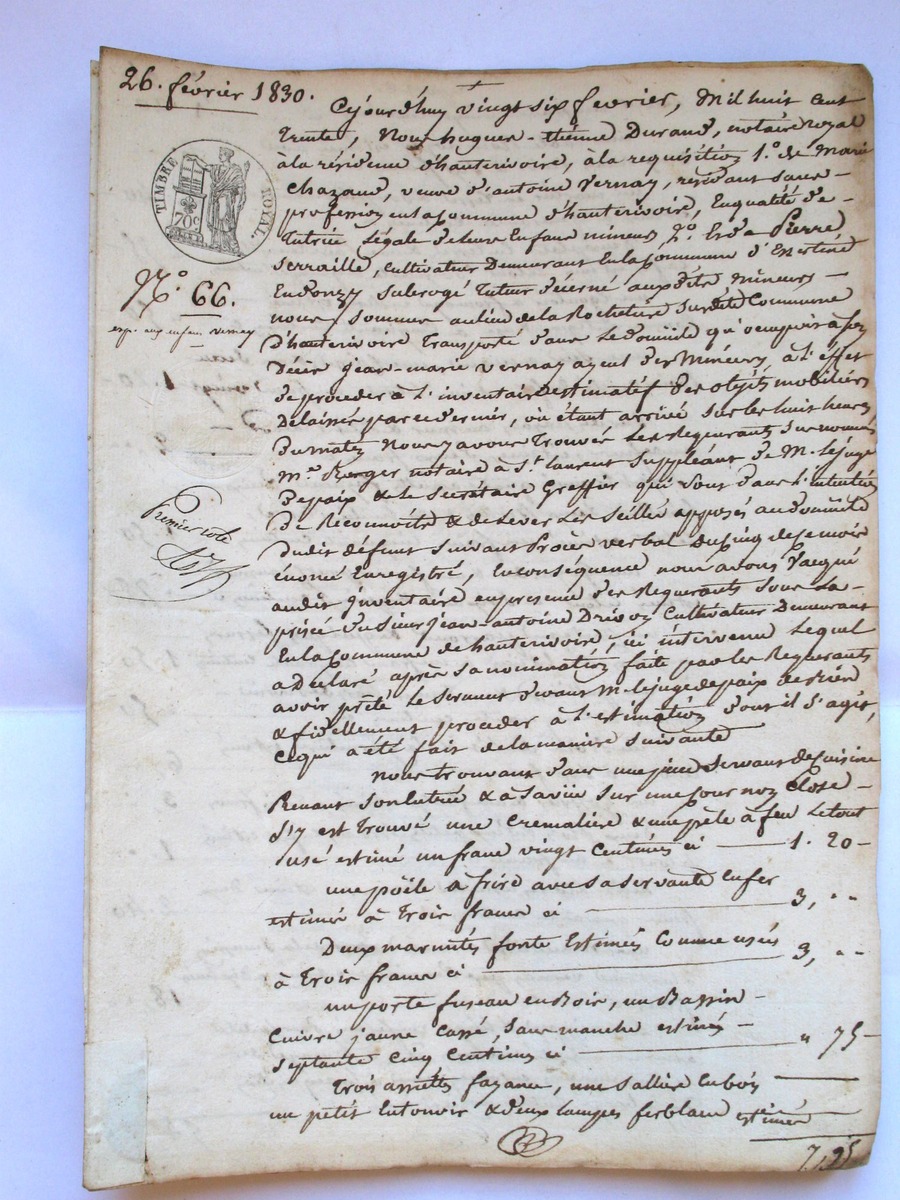 26. février 1830.
TIMBRE ROYAL.
70c
N° 66.
exp. aux enfans vernay
Premier rôle
Cejourd'huy vingt six fevrier, Mil huit cent
trente, Nous hugues-etienne Durand, notaire royal
à la résidence d'hauterivoire, à la requisition 1.° de Marie
Chazaud, veuve d'antoine Vernay, résidant sans-
profession en la commune d'hauterivoire, En qualité de-
tutrice Légale de leurs Enfans mineurs 2.° Et de Pierre
Serraille, Cultivateur Demeurant En la Commune d'Essertine
En donzy subrogé tuteur décerné auxdits mineurs-
nous sommes au lieu de la Rochetière Susdite Commune
D'hauterivoire transporté dans Le domicile qu'occupoit à son
Décès jean-marie vernay ayeul des Mineurs, à L'effet
De proceder à L'inventaire Estimatif des objets mobiliers
Delaissés par ce dernier, où étant arrivé sur les huit heures
Du matin Nous y avons trouvé Les Requérants sus nommés
M.e Roger notaire à S.t Laurent Suppléant de M. Le juge
De paix & Le secrétaire Greffier qui sont dans L'intention
De Reconnoître & de Lever Les Scellés apposés au domicile
Dudit défunt Suivant Procès verbal du cinq de ce mois
énoncé Enregistré, En conséquence nous avons Vacqué
audit Inventaire en presence des Requerants sous La-
prisée du sieur jean-antoine Cultivateur Demeurant
En la Commune de hauterivoire, ici intervenu Lequel
a Déclaré après sa nomination faite par les Requérants
avoir prêté Le Serment devant M. Le juge de paix de bien
& fidellement proceder à L'estimation dont il s'agit,
Ce qui a été fait de la maniere suivante
nous trouvant dans une pièce servant de cuisine
Prenant son entrée & à savoir sur une cour non Close-
S'y est trouvé une Cremalière & une pèle à feu Le tout
usé estimé un franc vingt Centimes ci 1. 20-
une pöele a frire avec sa servante En fer
estimée à trois francs ci 3, "
Deux marmites fonte Estimées Comme usées
à trois francs ci 3, "
un porte fuseau en Bois, un Bassin-
Cuivre jaune Cassé, sans manche estimés-
septante cinq Centimes ci " 75-
trois assiettes fayance, une salliere En bois
un petit Entonoir & deux lampes ferblanc estimés
7, 95